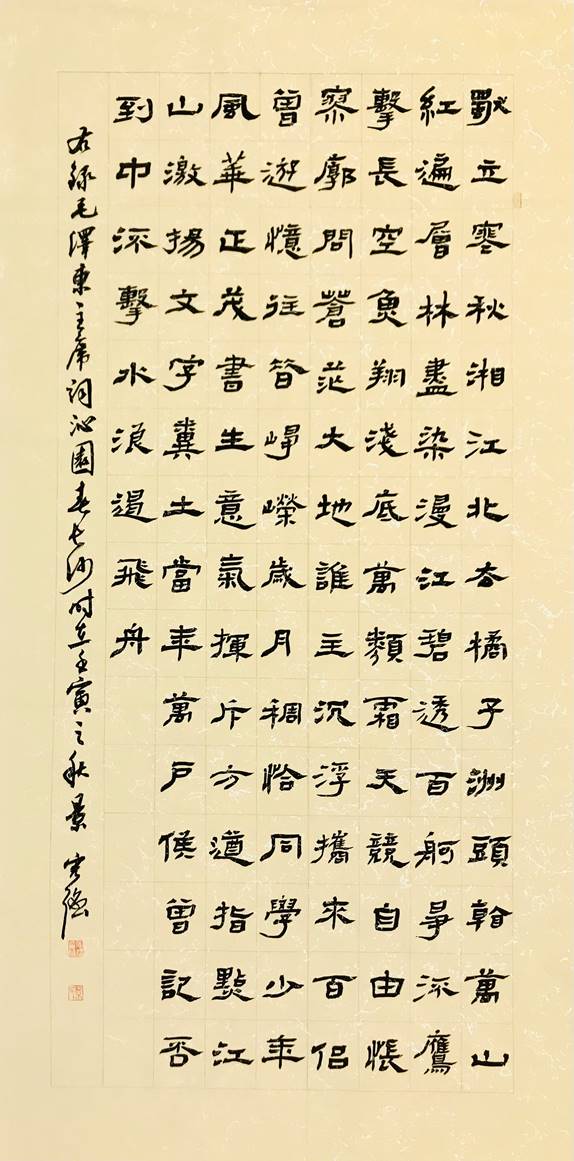 獨立寒秋湘江北去橘子洲頭看萬山
紅遍層林盡染漫江碧透百舸爭流鷹
擊長空魚翔淺底萬類霜天競自由悵
寥廓問蒼茫大地誰主沉浮攜來百侶
曾遊憶往昔崢嶸歲月稠恰同學少年
風華正茂書生意氣揮斥方遒指點江
山激揚文字糞土當年萬戶侯曾記否
到中流擊水浪遏飛舟
右錄毛澤東主席詞沁園春長沙时在壬寅之秋景